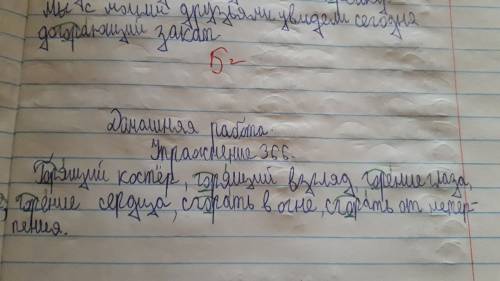 мы с моими друзьями увидем сегодня
догорающий закат
5=
Домашняя работа.
Упражнение 366.
Горящий костёр, горящий взгляд, горение глаза,
горение сердца, сгорать в огне, сгорать от нетер-
пения.